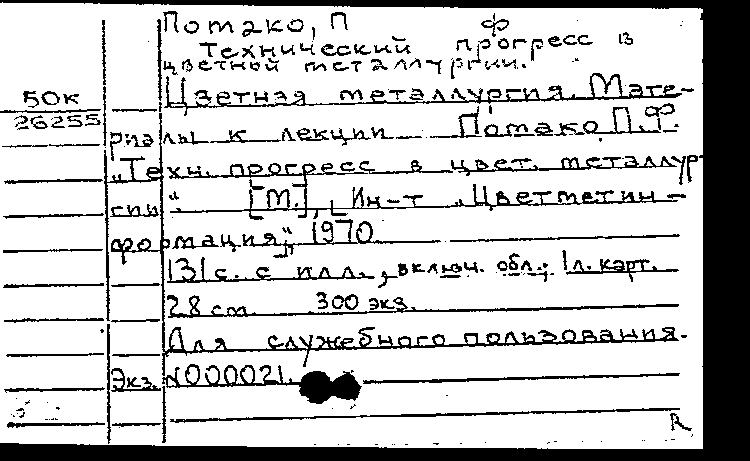 Потако, П Ф
Технический прогресс в
цветной металлургии.
50к
26255
Цветная металлургия. Мате-
риалы к лекции Потако П.Ф.
„Техн. прогресс в цвет. металлур
гии“ [М.], Ин-т „Цветметин-
формация“, 1970
131с. с илл., включ. обл.; 1л. карт.
28 см. 300 экз.
Для служебного пользования.
Экз. N000021.
R